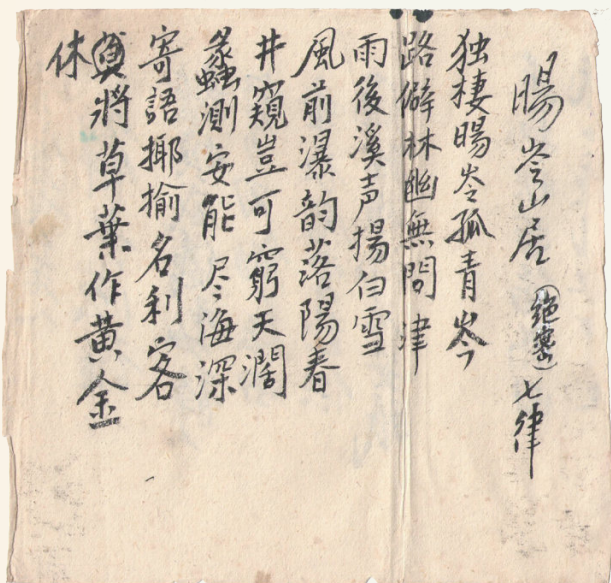 暘岺山居 七律
独棲暘岺孤青岑
路僻林幽無問津
雨後溪声揚白雪
風前瀑韵落陽春
井窺豈可窮天濶
蠡測安能尽海深
寄語揶揄名利客
莫將草葉作黃金
休